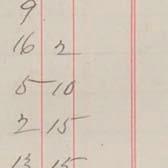 9
16 2
5 10
2 15
13 15